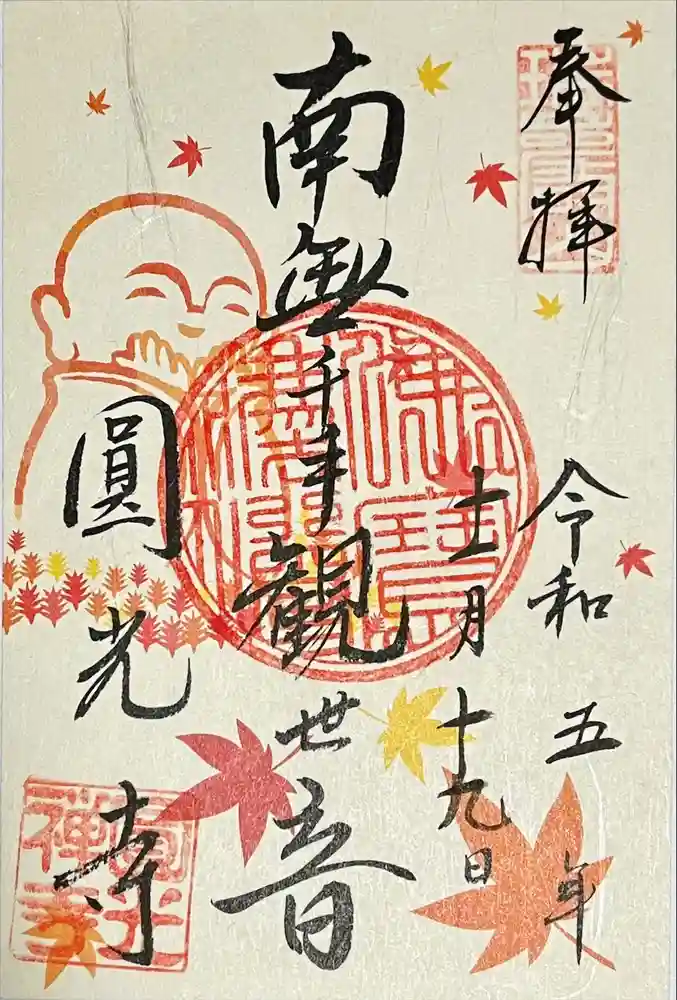 奉拝
令和五年
十一月十九日
南無千手観世音
圓光寺
圓光
禅寺